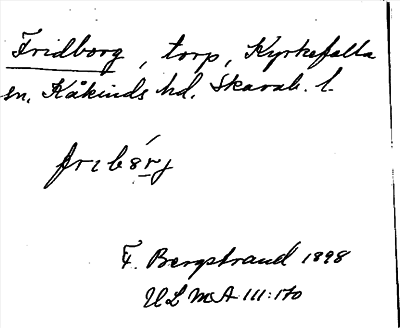 Fridborg, torp, Kyrkefalla
sn, Kåkinds hd. Skarab. l.
fribórj
F. Bergstrand 1898
ULMA 111:170